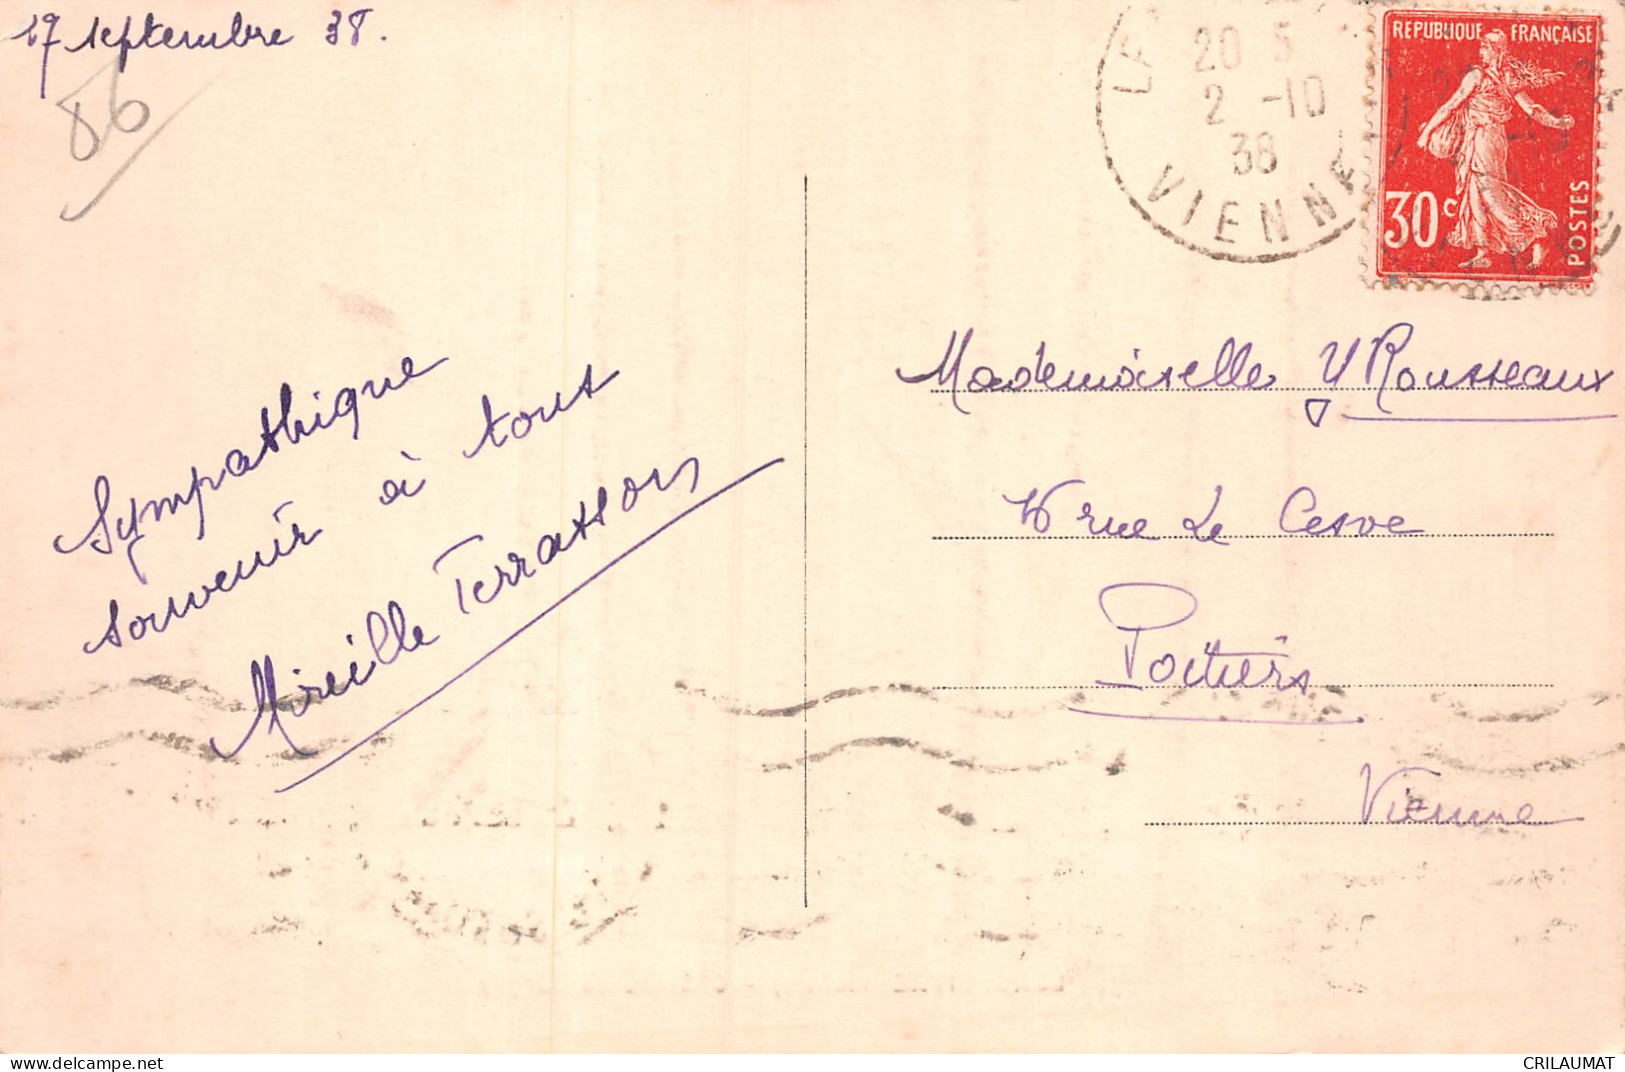 27 septembre 38.
86
Sympathique
souvenir à tous
Mireille Terrasson
LA
20 5
2 -10
38
VIENNE
REPUBLIQUE FRANÇAISE
30c
POSTES
Mademoiselle Y Rousseaux
16 rue Le Cesve
Poitiers
Vienne
www.delcampe.net
CRILAUMAT